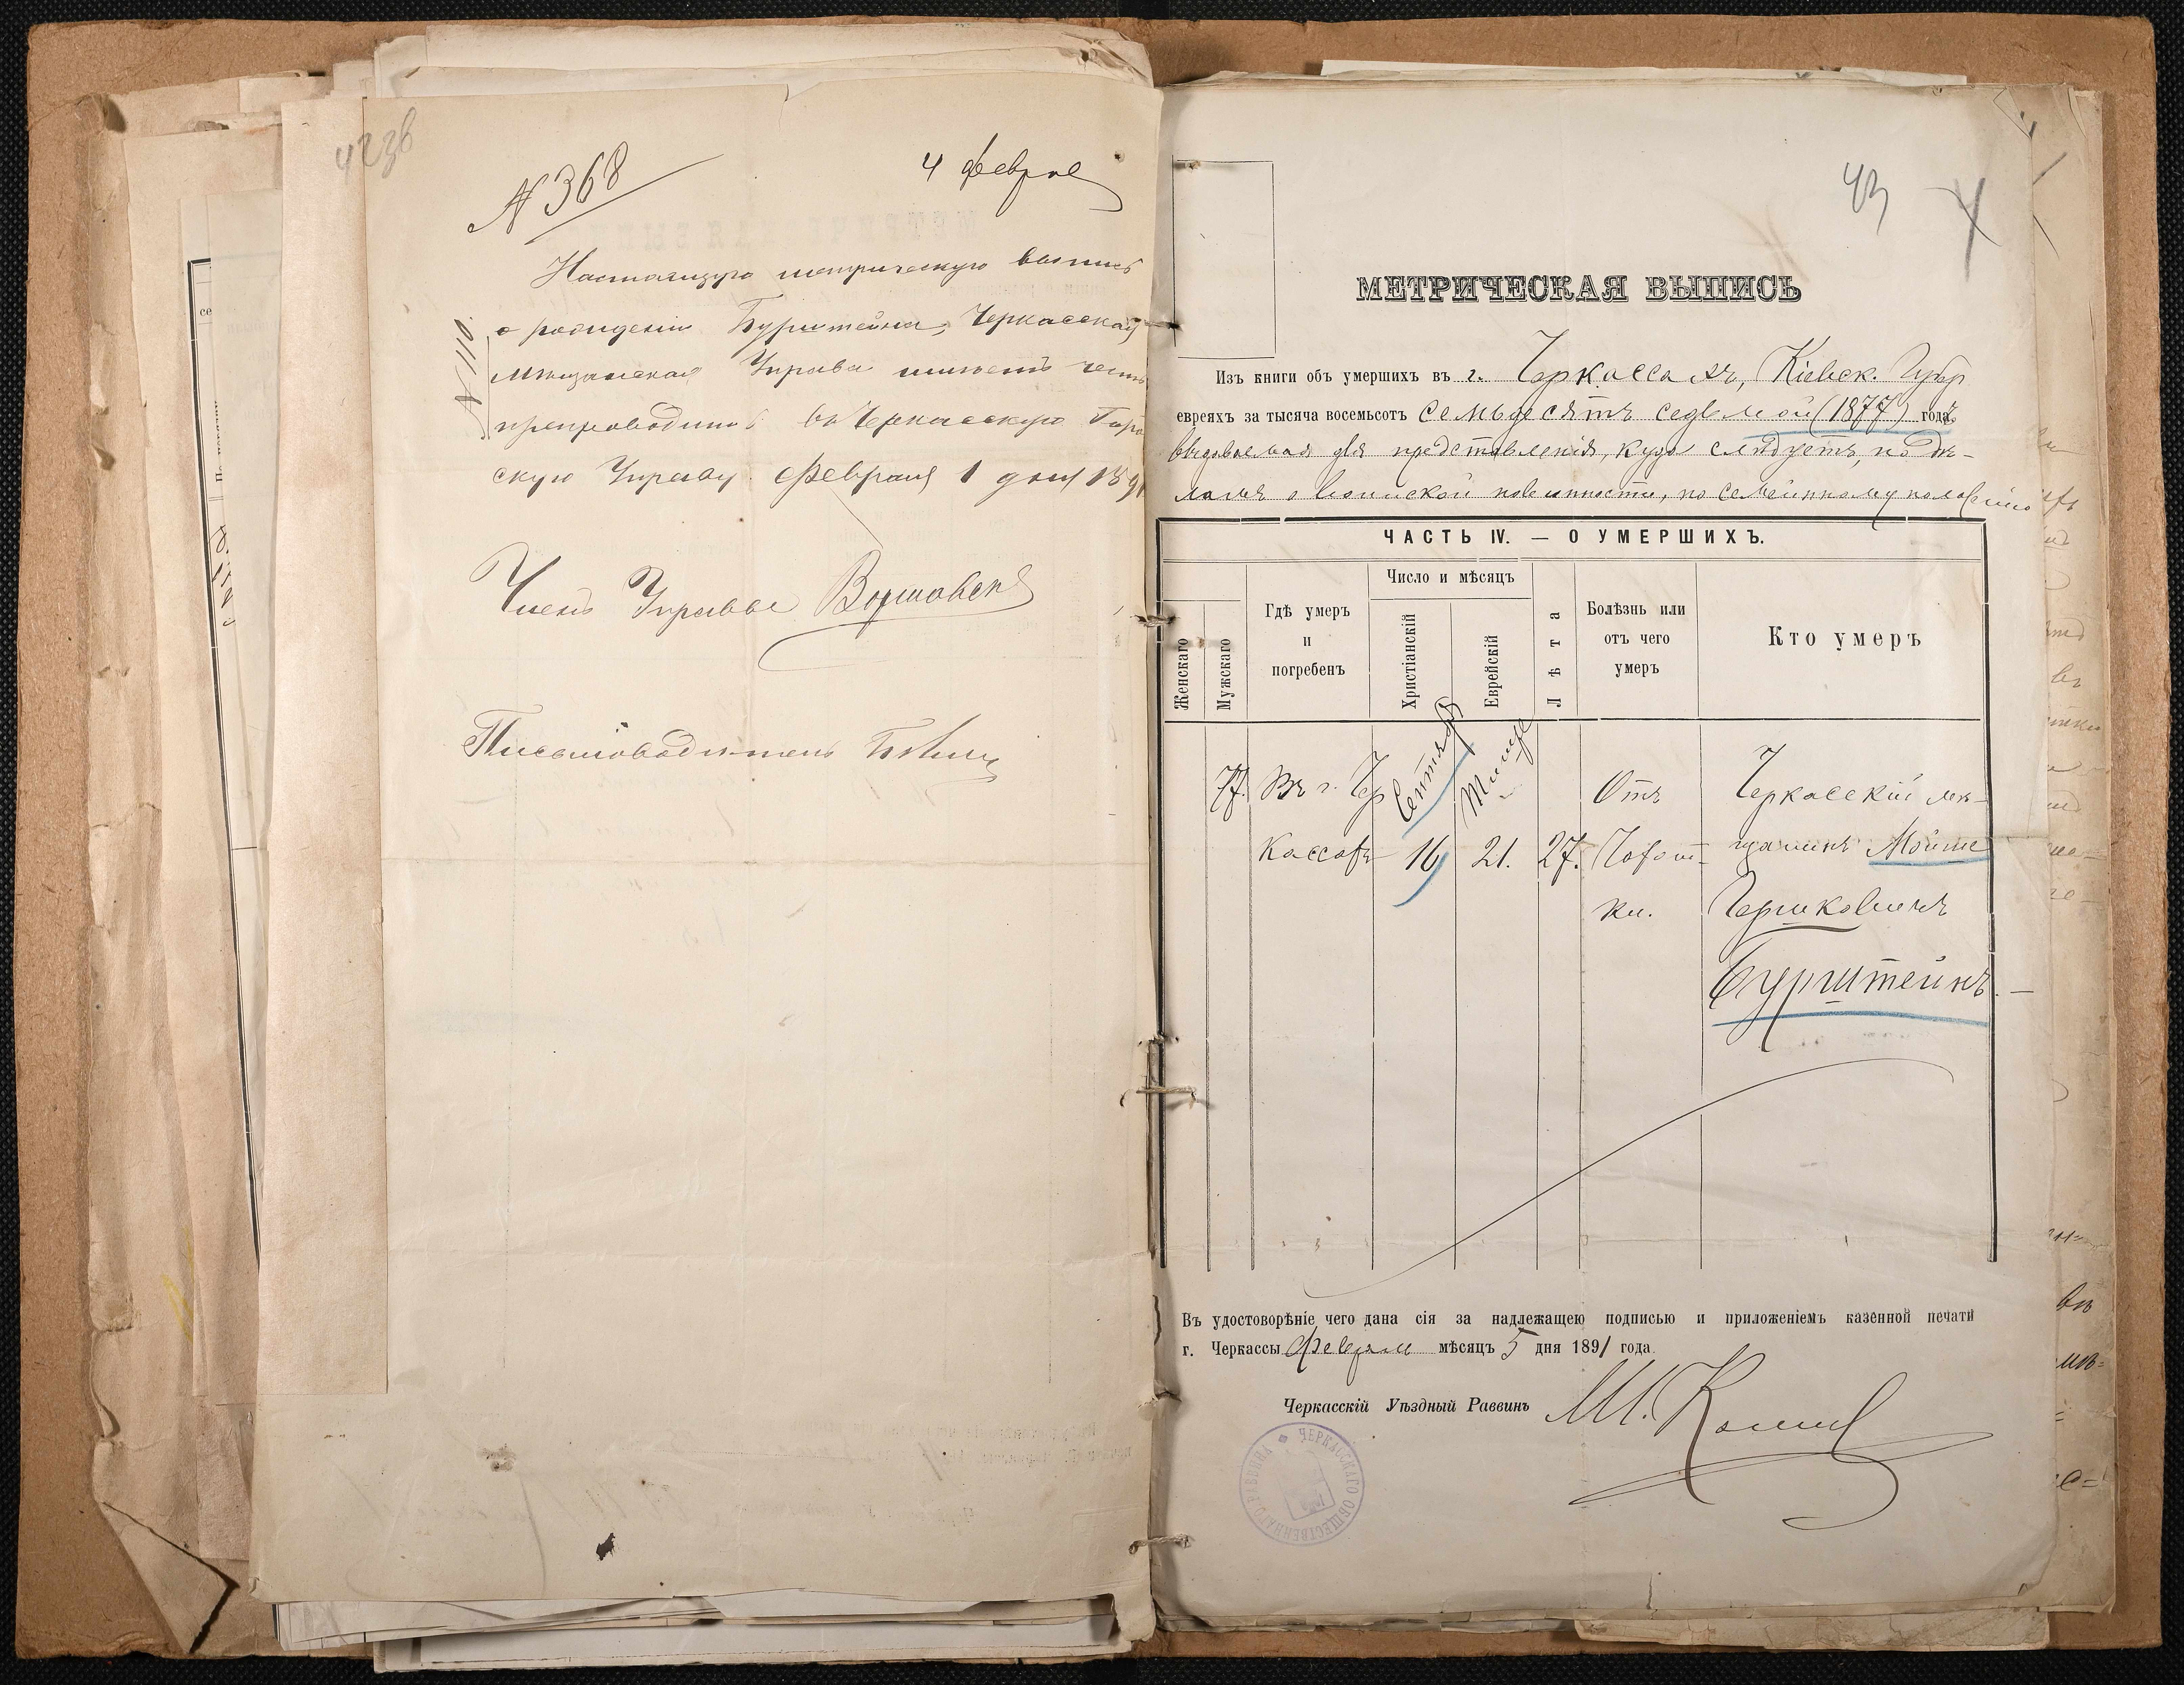 42 зв
N 368
4 Феврал
Настоящую метрическую выпись
о рождении Бурштейна, Черкасская
Мѣщанская Управа имѣетъ честь
препроводить въ Черкасскую Горо
скую Управу. Февраля 1 дня 189
N 110.
Членъ Управы
Письмоводитель
43
МЕТРИЧЕСКАЯ ВЫПИСЬ
Изъ книги объ умершихъ въ г. Черкассахъ, Кіевск. Губер
евреяхъ за тысяча восемьсотъ семьдесятъ седьмой (1877) годъ
выдаваемая для представленія, куда слѣдуетъ, по дѣ-
ламъ о воинской повинности, по семейному положенію
ЧАСТЬ IV. — О УМЕРШИХЪ.
Женскаго
Мужскаго
Гдѣ умеръ
и
погребенъ
Число и мѣсяцъ
Христіанскій
Еврейскій
Лѣта
Болѣзнь или
отъ чего
умеръ
Кто умеръ
77.
Въ г. Чер
кассахъ
Сентября
16
Тишре
21.
27.
Отъ
Чахот-
ки.
Черкасскій мѣ-
щанинъ Мойше
Гершковичъ
Бурштейнъ. —
Въ удостоворѣніе чего дана сія за надлежащею подписью и приложеніемъ казенной печати
г. Черкассы Февраля мѣсяцъ 5 дня 1891 года.
Черкасскій Уѣздный Раввинъ
ЧЕРКАССКАГО ОБЩЕСТВЕННАГО РАВВИНА